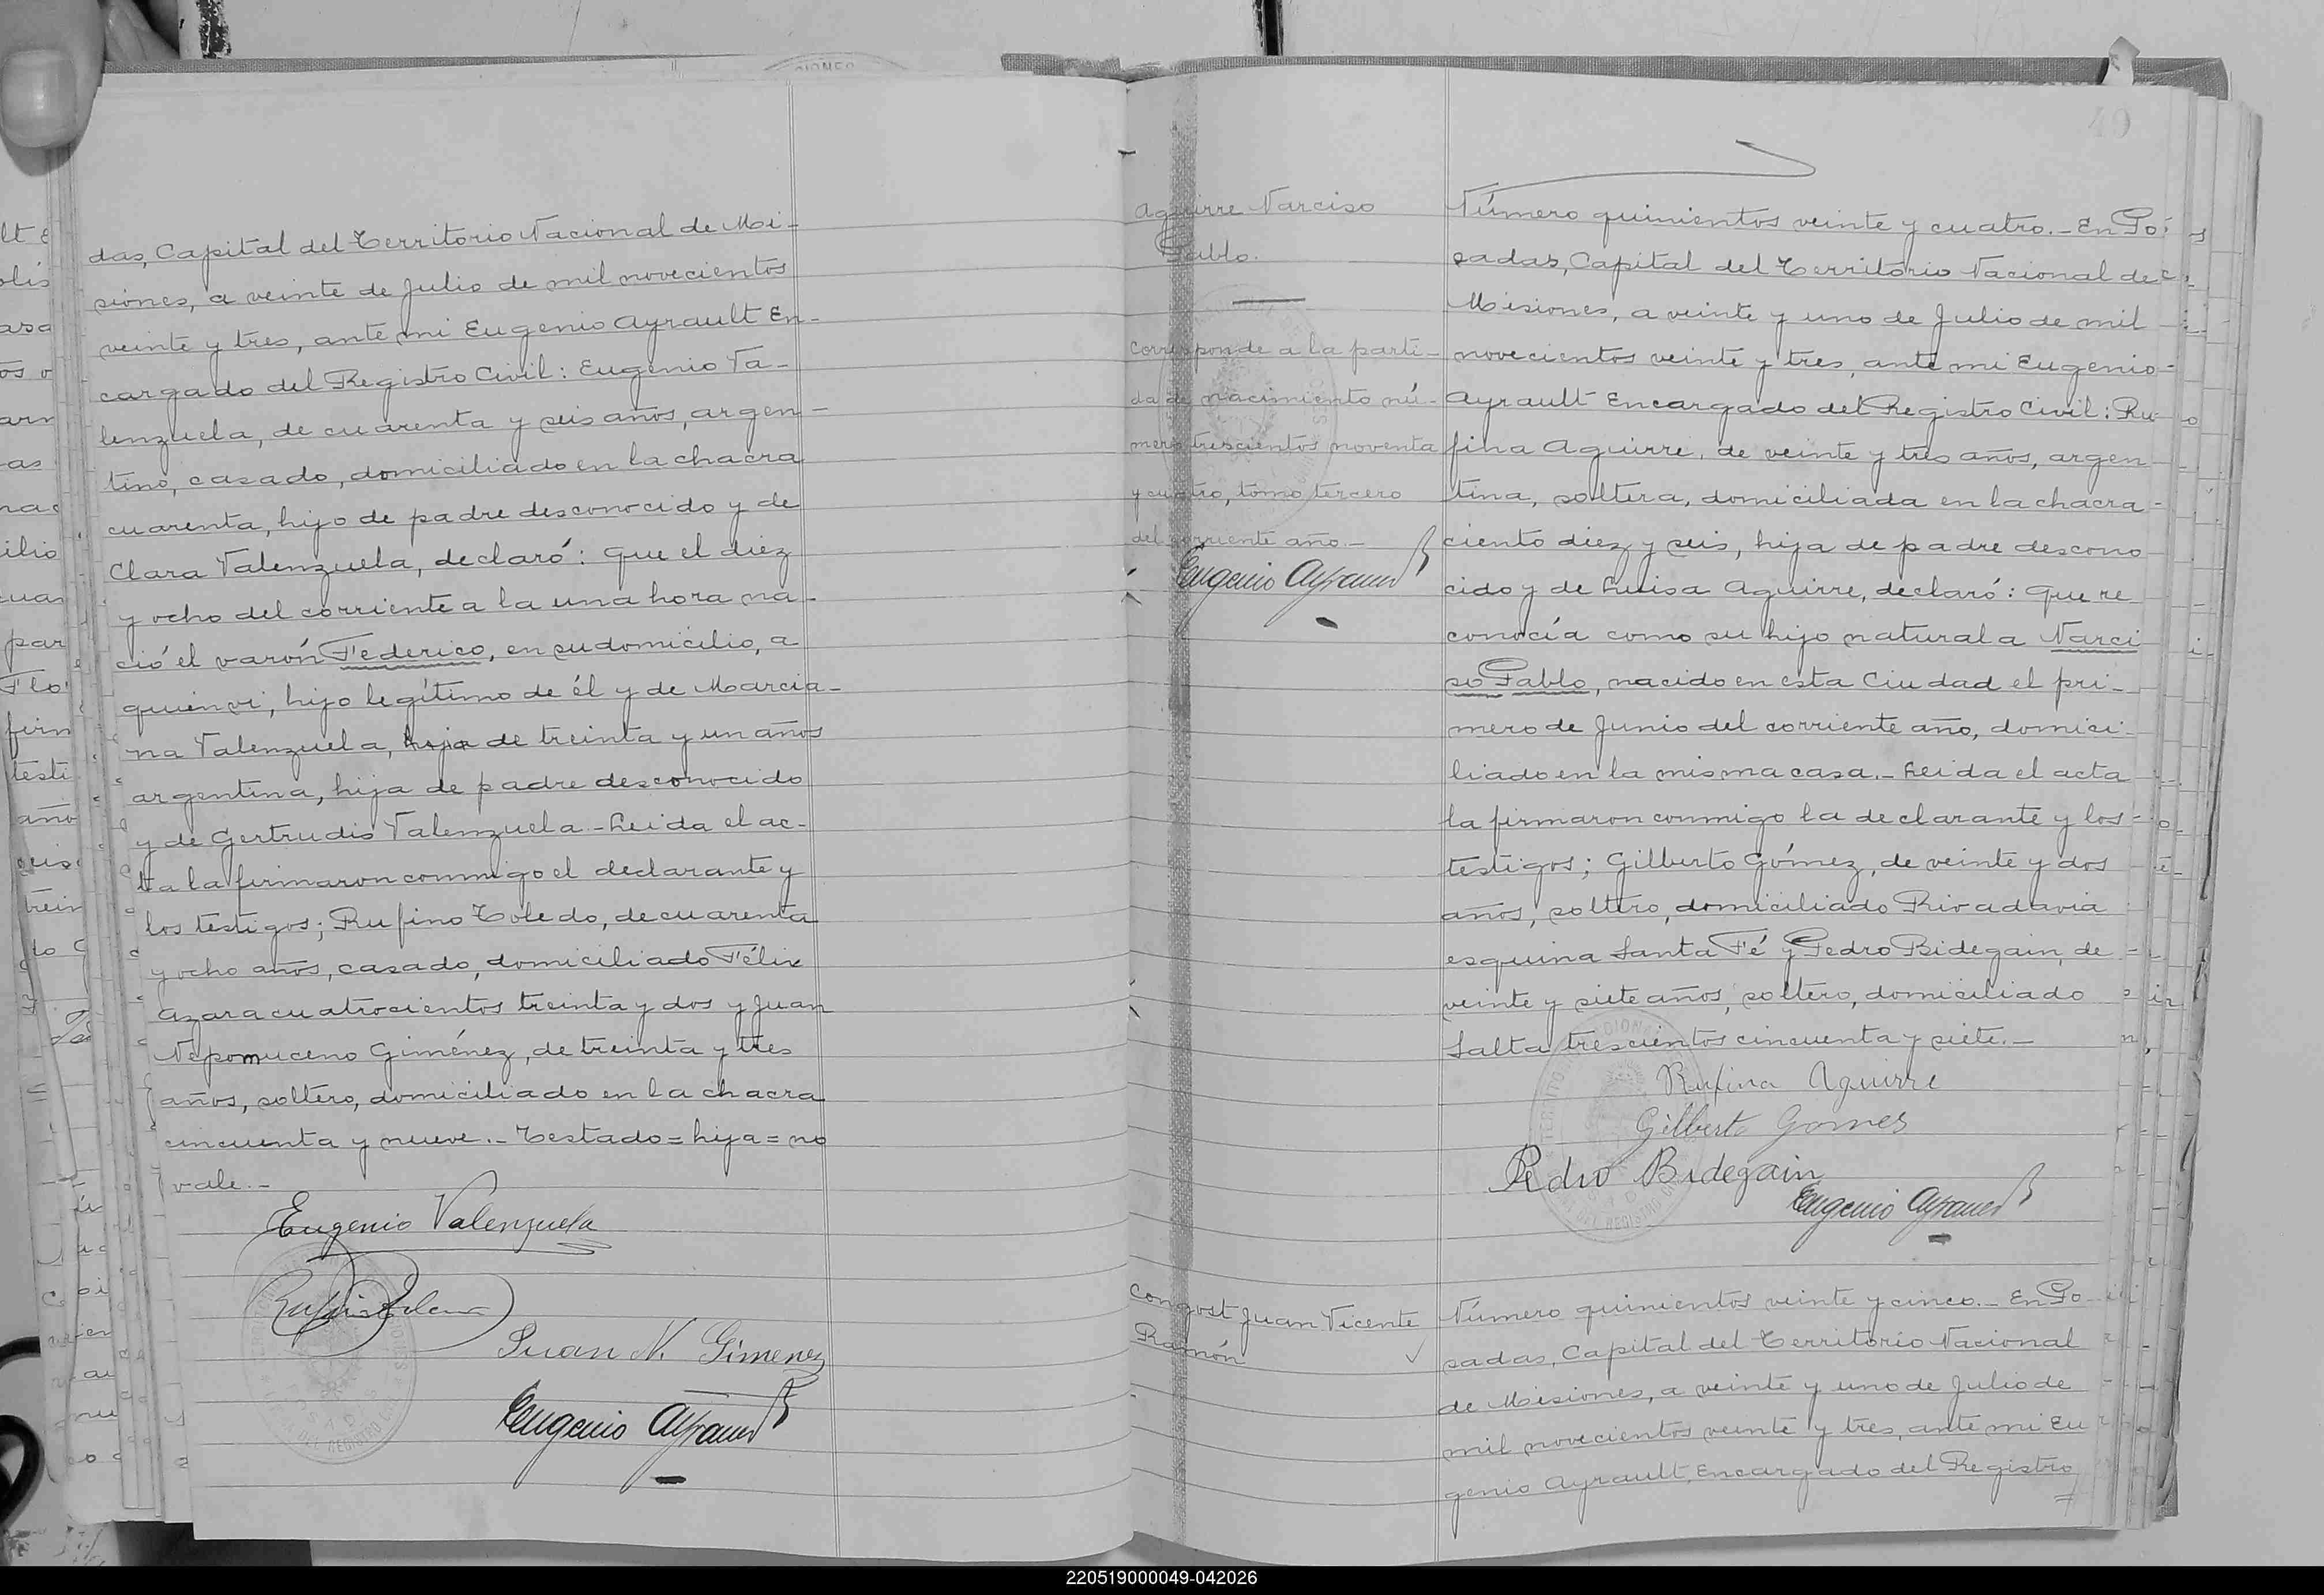 das, Capital del Territorio Nacional de Mi-
siones, a veinte de Julio de mil novecientos
veinte y tres, ante mi Eugenio Ayrault En-
cargado del Registro Civil: Eugenio Va-
lenzuela, de cuarenta y seis años, argen-
tino, casado, domiciliado en la chacra
cuarenta, hijo de padre desconocido y de
Clara Valenzuela, declaró: Que el diez
y ocho del corriente a la una hora na-
ció el varón Federico, en su domicilio, a
quien vi, hijo legítimo de él y de Marcia-
na Valenzuela, hija de treinta y un años
argentina, hija de padre desconocido
y de Gertrudis Valenzuela.- Leida el ac-
ta la firmaron conmigo el declarante y
los testigos; Rufino Toledo, de cuarenta
y ocho años, casado, domiciliado Félix
Azara cuatrocientos treinta y dos y Juan
Nepomuceno Giménez, de treinta y tres
años, soltero, domiciliado en la chacra
cincuenta y nueve.- Testado=hija=no
vale.-
Eugenio Valenzuela
Juan N. Gimenez
Eugenio Ayrault
49
Aguirre Narciso
Pablo.
Corresponde a la parti-
da de nacimiento nú-
mero trescientos noventa
y cuatro, tomo tercero
del corriente año.-
Eugenio Ayrault
Número quinientos veinte y cuatro.- En Po-
sadas, Capital del Territorio Nacional de
Misiones, a veinte y uno de Julio de mil
novecientos veinte y tres, ante mi Eugenio
Ayrault Encargado del Registro Civil: Ru-
fina Aguirre, de veinte y tres años, argen-
tina, soltera, domiciliada en la chacra
ciento diez y seis, hija de padre descono
cido y de Luisa Aguirre, declaró: Que re
conocía como su hijo natural a Narci
so Pablo, nacido en esta Ciudad el pri-
mero de Junio del corriente año, domici-
liado en la misma casa.- Leida el acta
la firmaron conmigo la declarante y los
testigos; Gilberto Gómez, de veinte y dos
años, soltero, domiciliado Rivadavia
esquina Santa Fé y Pedro Bidegain, de
veinte y siete años, soltero, domiciliado
Salta trescientos cincuenta y siete.-
Rufina Aguirre
Gilberto Gomes
Pedro Bidegain
Eugenio Ayrault
Congost Juan Vicente
Ramón
Número quinientos veinte y cinco.- En Po-
sadas, Capital del Territorio Nacional
de Misiones, a veinte y uno de Julio de
mil novecientos veinte y tres, ante mi Eu
genio Ayrault, Encargado del Registro
220519000049-042026